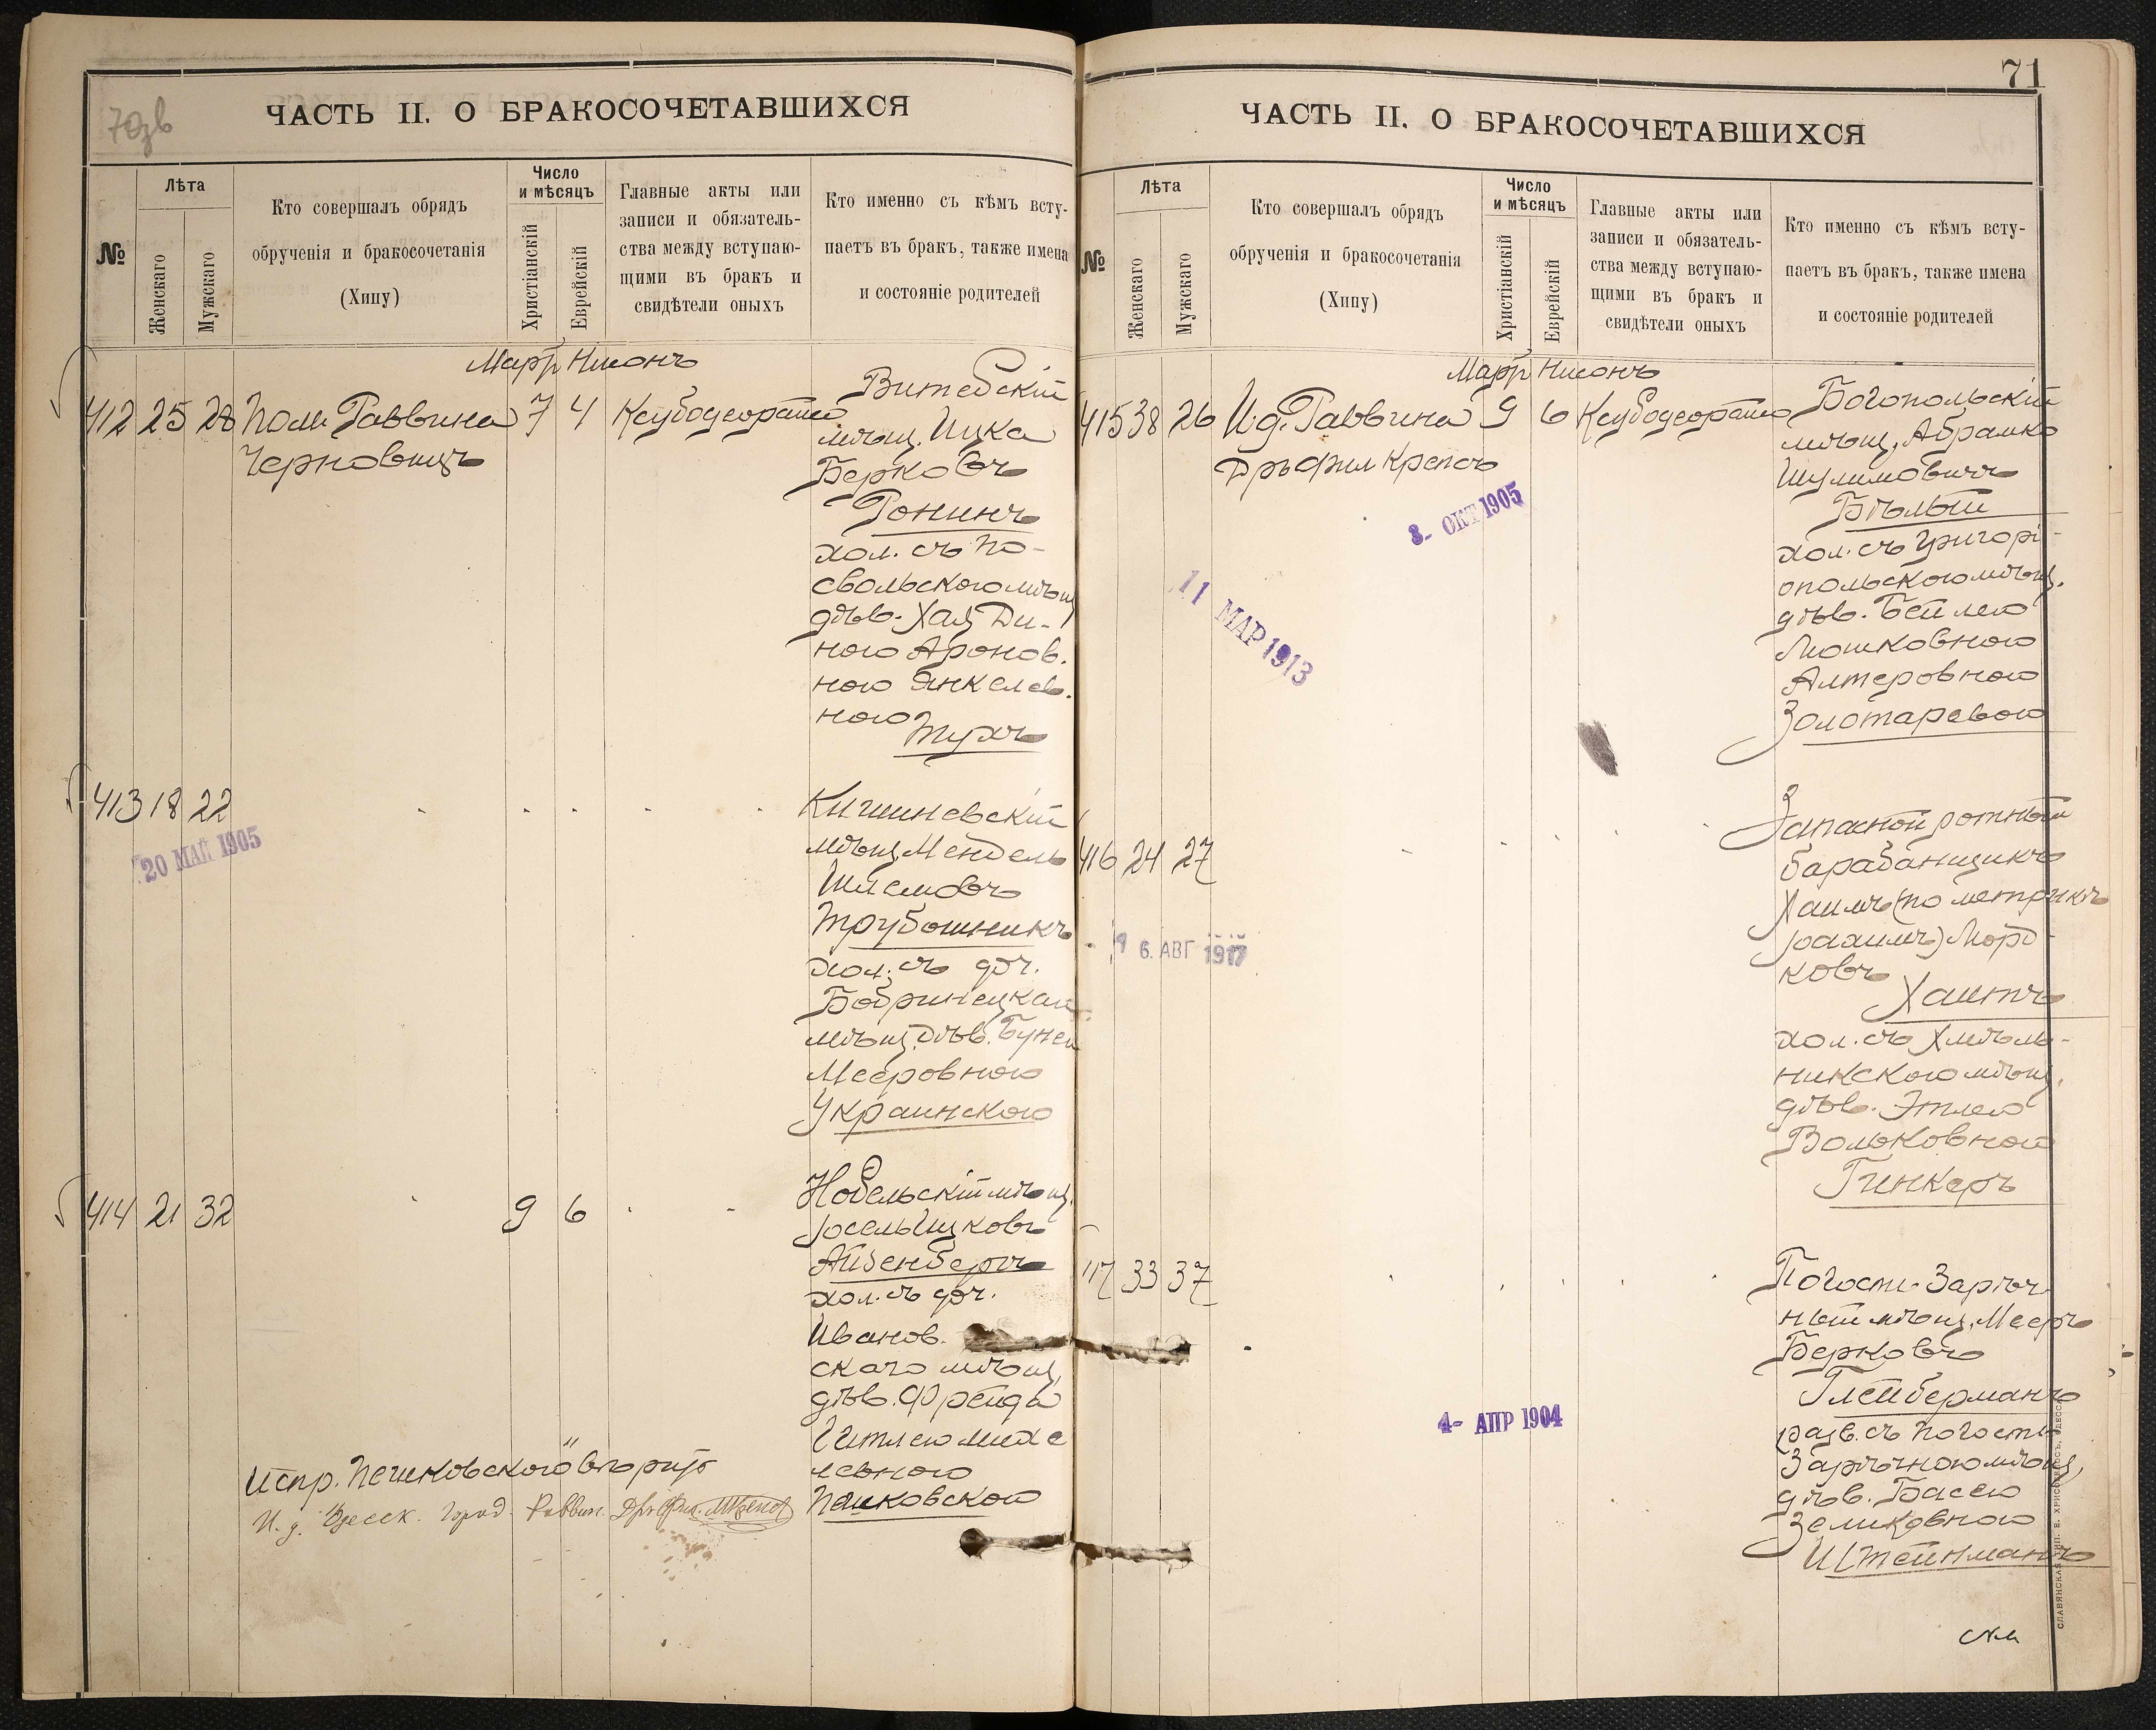 70зв
ЧАСТЬ II. О БРАКОСОЧЕТАВШИХСЯ
№
Лѣта
Женскаго
Мужскаго
Кто совершалъ обрядъ
обрученія и бракосочетанія
(Хипу)
Число
и мѣсяцъ
Христіанскій
Еврейскій
Главные акты или
записи и обязатель-
ства между вступаю-
щими въ бракъ и
свидѣтели оныхъ
Кто именно съ кѣмъ всту-
паетъ въ бракъ, также имена
и состояніе родителей
Мартъ Нисонъ
412 25 28 Пом. Раввина 7 4
Черновицъ
Витебскій
мѣщ. Ицка
Берковъ
Ронинъ
хол. съ По-
свольскою мѣщ.
дѣв. Хая Ди-
ною Аронов.
ною Янкелев.
ною
Тухъ
413 18 22
20 МАЙ 1905
Кишиневскій
мѣщ. Мендель
Шлемовъ
Трубошникъ
хол. съ доч.
Бобринецкаго
мѣщ. дѣв. Бунею
Мееровною
Украинскою
414 21 32 9 6
Нобельскій мѣщ.
Іосель Ицковъ
Айзенбергъ
хол. съ доч.
Иванов.
скаго мѣщ.
дѣв. Фрейда
Гитлею Михе
левною
Пешковскою
Испр. "Пешковскою" вѣрно
И. д. Одесск. Город. Раввин. Дръ Фил.
71
ЧАСТЬ II. О БРАКОСОЧЕТАВШИХСЯ
№
Лѣта
Женскаго
Мужскаго
Кто совершалъ обрядъ
обрученія и бракосочетанія
(Хипу)
Число
и мѣсяцъ
Христіанскій
Еврейскій
Главные акты или
записи и обязатель-
ства между вступаю-
щими въ бракъ и
свидѣтели оныхъ
Кто именно съ кѣмъ всту-
паетъ въ бракъ, также имена
и состояніе родителей
Мартъ Нисонъ
415 38 26 И. д. Раввина 9 6
Дръ Фил Крепсъ
8- ОКТ 1905
11 МАР 1913
Богопольскій
мѣщ. Абрамко
Шулимовичъ
Бѣлый
хол. съ Григорі-
опольскою мѣщ.
дѣв. Бейлею
Мошковною
Алтеровною
Золотаревою
416 24 27
6. АВГ 1917
Запасной ротный
барабанщикъ
Хаимъ (по метрикѣ
Іоахимъ) Морд-
ковъ
Хаитъ
хол. съ Хмѣль-
никскою мѣщ.
дѣв. Этлею
Вольковною
Гинкеръ
417 33 37
4- АПР 1904
Погост-Зарѣч
ный мѣщ. Мееръ
Берковъ
Глейберманъ
разв. съ Погостъ
Зарѣчною мѣщ.
дѣв. Басею
Зеликовною
Штейнманъ
СЛАВЯНСКАЯ ТИП. Е. ХРИСОГЕЛОСЪ, ОДЕССА